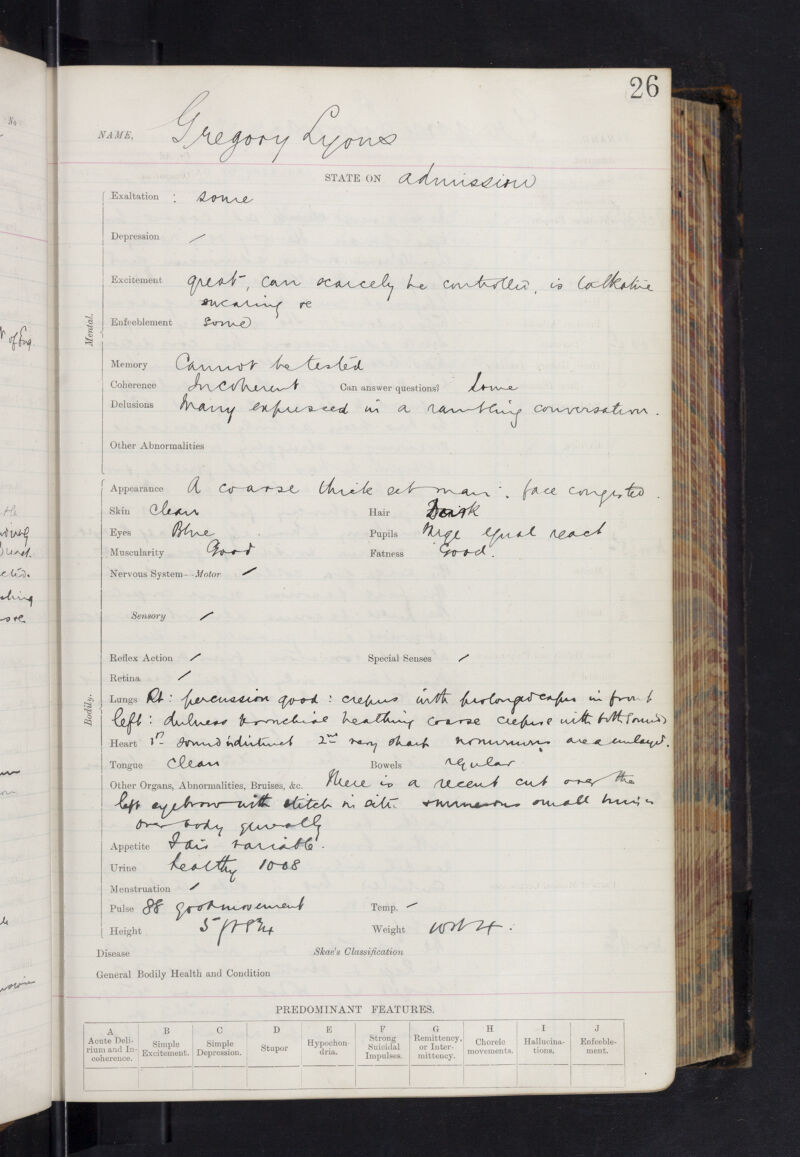 26
NAME, Gregory Lyons
STATE ON admission
Mental.
Exaltation : some
Depression /
Excitement great, can scarcely be controlled, is talkative
swearing &c
Enfeeblement some
Memory Cannot be tested
Coherence Incoherent Can answer questions? Some
Delusions Many expressed in a rambling conversation.
Other Abnormalities
Bodily.
Appearance A coarse thick set man: face congested.
Skin clean Hair Dark
Eyes Blue Pupils large equal react
Muscularity Good Fatness Good.
Nervous System—Motor /
Sensory /
Reflex Action / Special Senses /
Retina /
Lungs Rt: percussion good: creps with prolonged in front
left: dulness bronchial breathing coarse with both sounds
Heart 1st sound indistinct 2nd very sharp no murmurs area enlarged.
Tongue clean Bowels regular
Other Organs, Abnormalities, Bruises, &c. There is a recent cut over the
left eyebrow with stitch in situ. numerous small bruises
over body generally
Appetite Fair variable.
Urine healthy 1008
Menstruation /
Pulse 88 good movement Temp. /
Height 5 ft 8¾ Weight 10 st 4.
Disease Skae's Classification
General Bodily Health and Condition
PREDOMINANT FEATURES.
A B C D E F G H I J
Acute Delirium and Incoherence. Simple Excitement. Simple Depression. Stupor Hypochondria. Strong Suicidal Impulses. Remittency, or Intermittency. Choreic movements. Hallucinations. Enfeeblement.